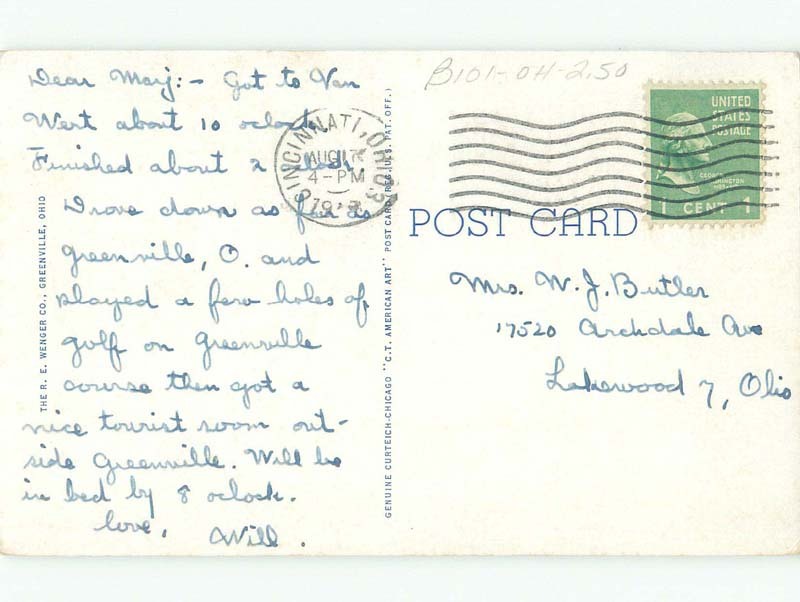 Dear Marj:- Got to Van
Wert about 10 oclock
Finished about 2 oclock
Drove down as far as
Greenville, O. and
played a few holes of
golf on Greenville
course then got a
nice tourist room out-
side Greenville. Will be
in bed by 8 oclock.
love,
Will.
THE R. E. WENGER CO., GREENVILLE, OHIO
GENUINE CURTEICH-CHICAGO "C.T. AMERICAN ART" POST CARD (REG. U.S. PAT. OFF.)
B101-OH-2.50
CINCINNATI, OHIO
AUG 17
4-PM
UNITED
STATES
POSTAGE
GEORGE
WASHINGTON
1 CENT 1
POST CARD
Mrs. W. J. Butler
17520 Archdale Ave
Lakewood 7, Ohio